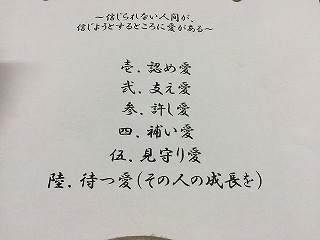 ～信じられない人間が、
信じようとするところに愛がある～
壱、認め愛
弐、支え愛
参、許し愛
四、補い愛
伍、見守り愛
陸、待つ愛(その人の成長を)